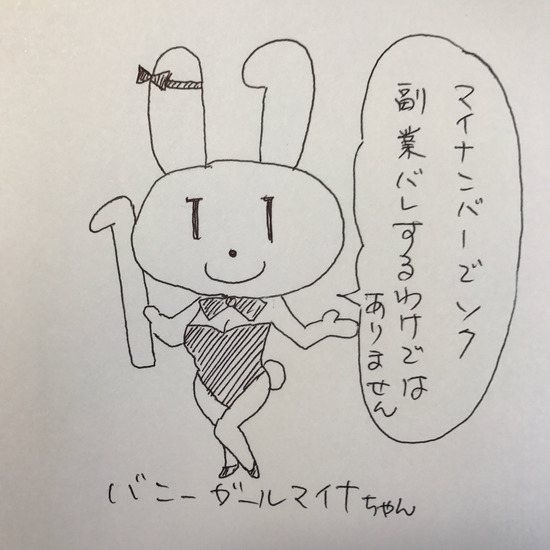 マイナンバーでソク
副業バレするわけでは
ありません
バニーガールマイナちゃん